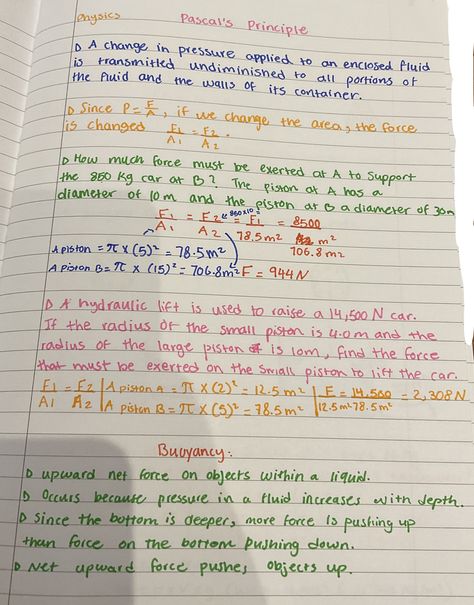 Physics
Pascal's Principle
D A change in pressure applied to an enclosed fluid
is transmitted undiminished to all portions of
the fluid and the walls of its container.
D Since P = F/A, if we change the area, the force
is changed F1/A1 = F2/A2.
D How much force must be exerted at A to support
the 850 kg car at B? The piston at A has a
diameter of 10m and the piston at B a diameter of 30m
F1/A1 = F2/A2 "850x10" = F1/78.5m² = 8500/706.8m²
A piston = π × (5)² = 78.5m²
A piston B = π × (15)² = 706.8m² F = 944N
D A hydraulic lift is used to raise a 14,500 N car.
If the radius of the small piston is 4.0m and the
radius of the large piston is 10m, find the force
that must be exerted on the small piston to lift the car.
F1/A1 = F2/A2 | A piston A = π × (2)² = 12.5m² | F/12.5m² = 14,500/78.5m² = 2,308N
A piston B = π × (5)² = 78.5m²
Buoyancy:
D upward net force on objects within a liquid.
D Occurs because pressure in a fluid increases with depth.
D Since the bottom is deeper, more force is pushing up
than force on the bottom pushing down.
D Net upward force pushes objects up.